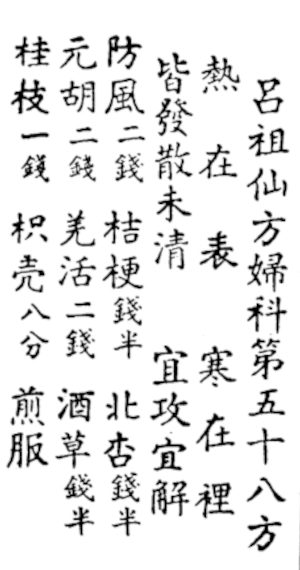 呂祖仙方婦科第五十八方
熱在表 寒在裡
皆發散未清 宜攻宜解
防風二錢 桔梗錢半 北杏錢半
元胡二錢 羌活二錢 酒草錢半
桂枝一錢 枳壳八分 煎服